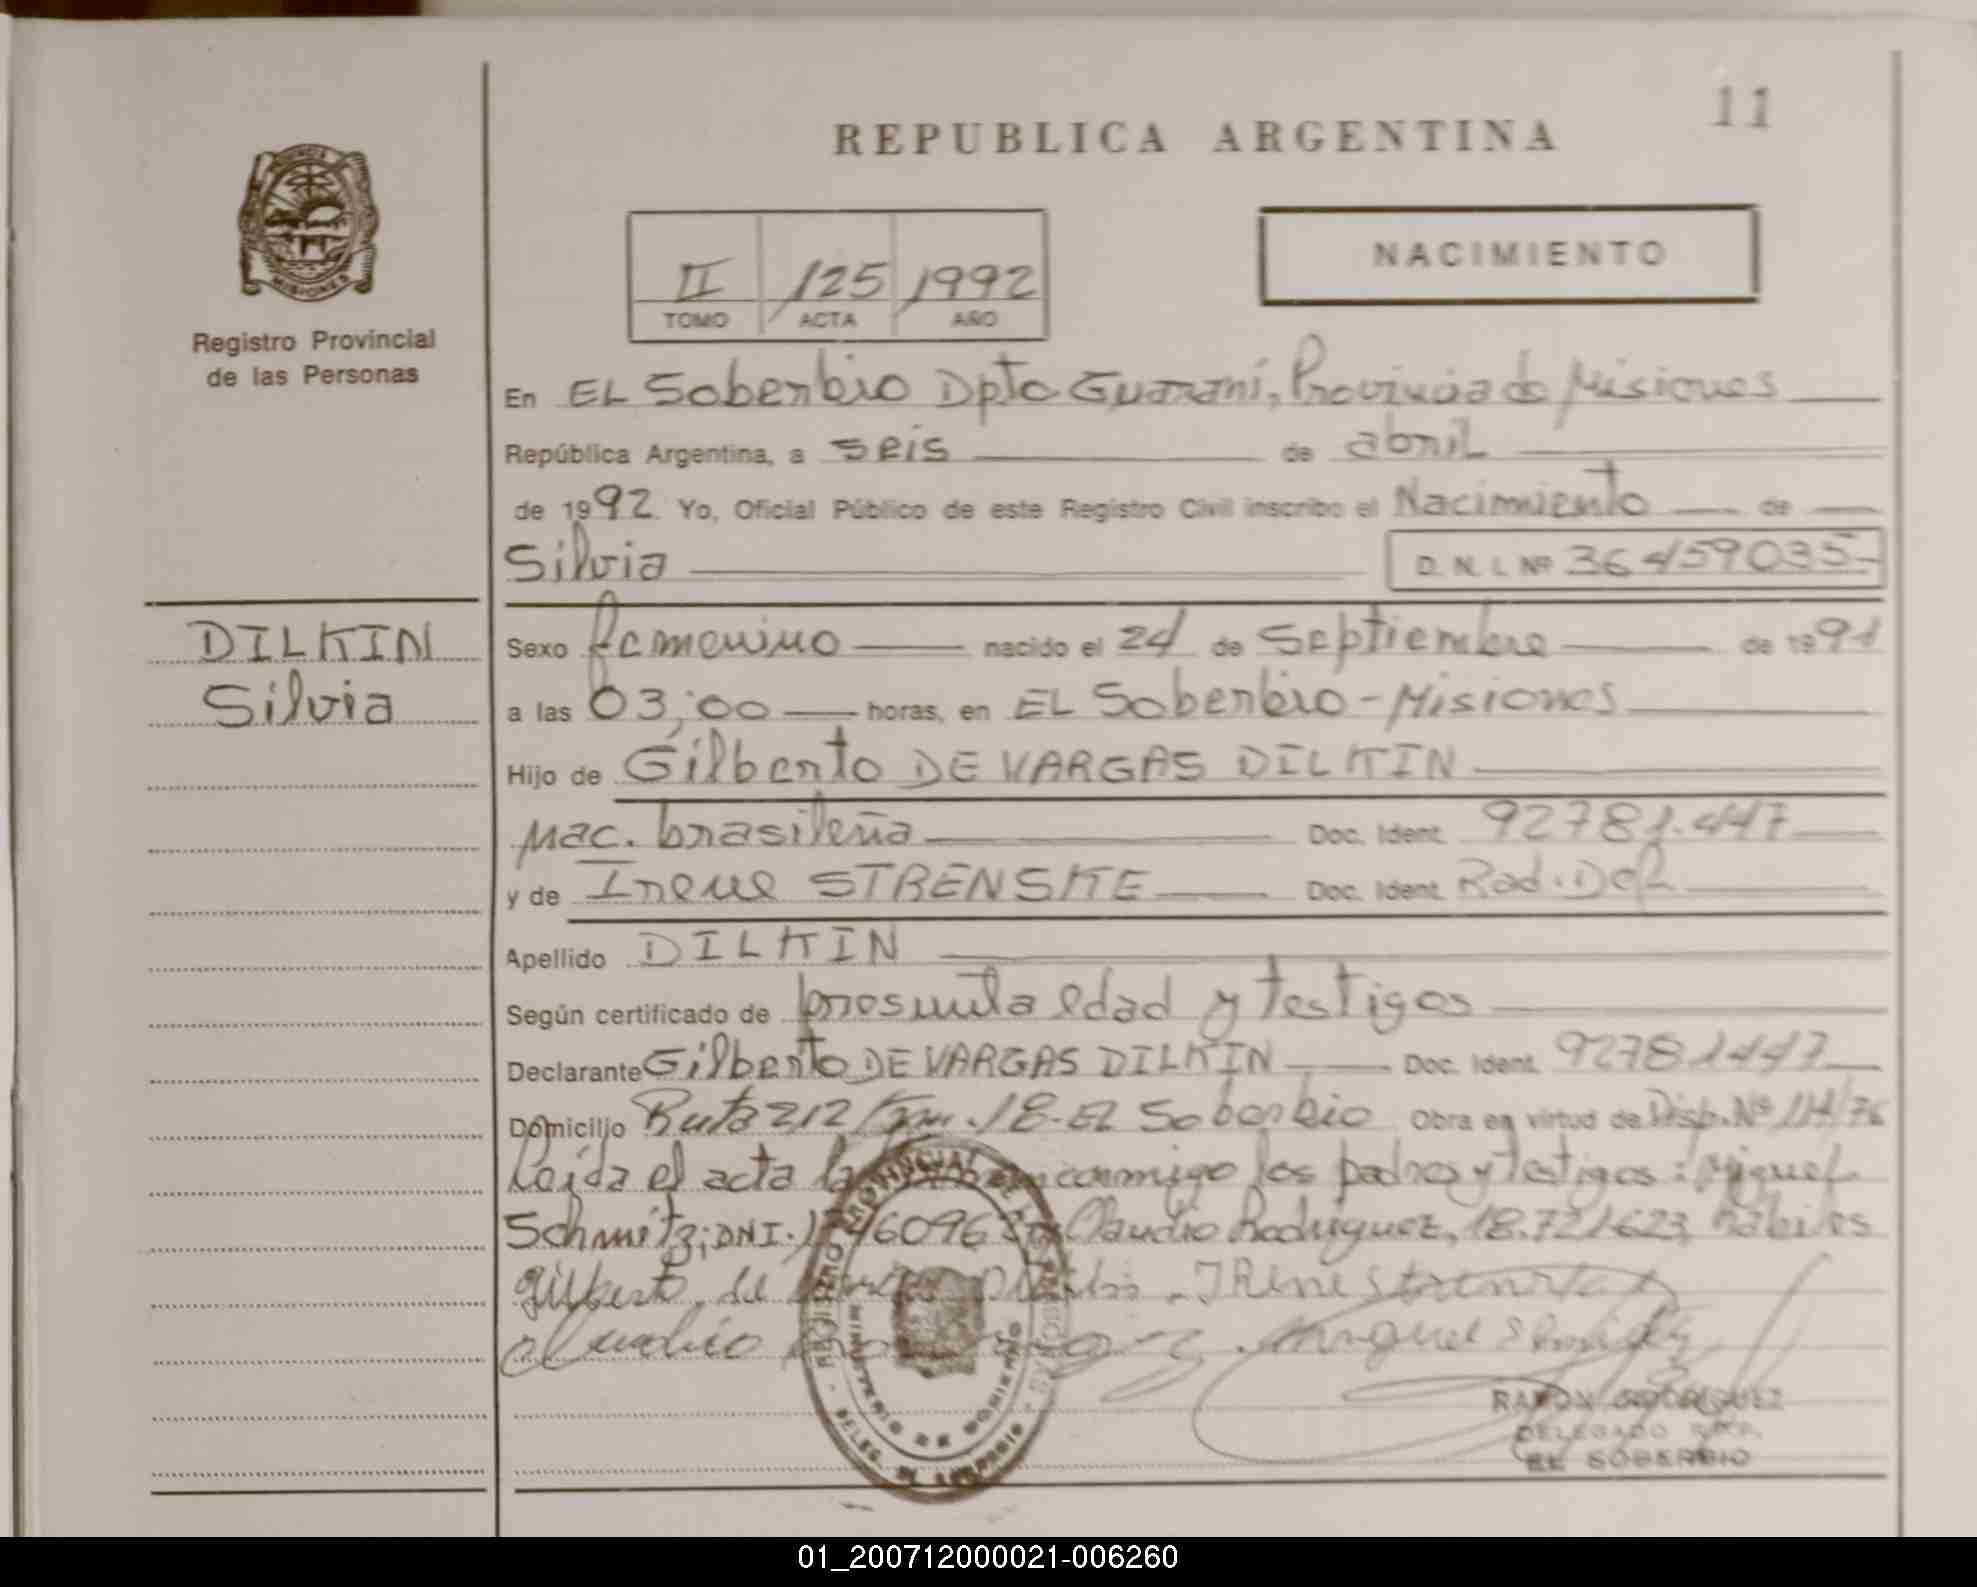 11
REPUBLICA ARGENTINA
PROVINCIA
MISIONES
Registro Provincial
de las Personas
II 125 1992
TOMO ACTA AÑO
NACIMIENTO
En EL Soberbio Dpto Guaraní, Provincia de Misiones
República Argentina, a seis de abril
de 1992 Yo, Oficial Público de este Registro Civil inscribo el Nacimiento de
Silvia D. N. I. Nº 36459035
DILKIN
Silvia
Sexo femenino nacido el 24 de Septiembre de 1991
a las 03,00 horas, en EL Soberbio - Misiones
Hijo de Gilberto DE VARGAS DILKIN
nac. brasileña Doc. Ident. 92781.447
y de Irene STRENSKE Doc. Ident. Rad. Def
Apellido DILKIN
Según certificado de presunta edad y testigos
Declarante Gilberto DE VARGAS DILKIN Doc. Ident. 92781447
Domicilio Ruta 212 Km. 18 - EL Soberbio Obra en virtud de Disp. Nº 114/76
Leída el acta la conmigo los padres y testigos: Miguel
Schmitz; DNI. Claudio Rodríguez, 18.721623 hábiles
Gilberto de Irene
Claudio Miguel
REGISTRO PROVINCIAL DE LAS PERSONAS
MINISTERIO DE GOBIERNO
DELEG. EL SOBERBIO
RAMON RODRIGUEZ
DELEGADO R.P.P.
EL SOBERBIO
01_200712000021-006260